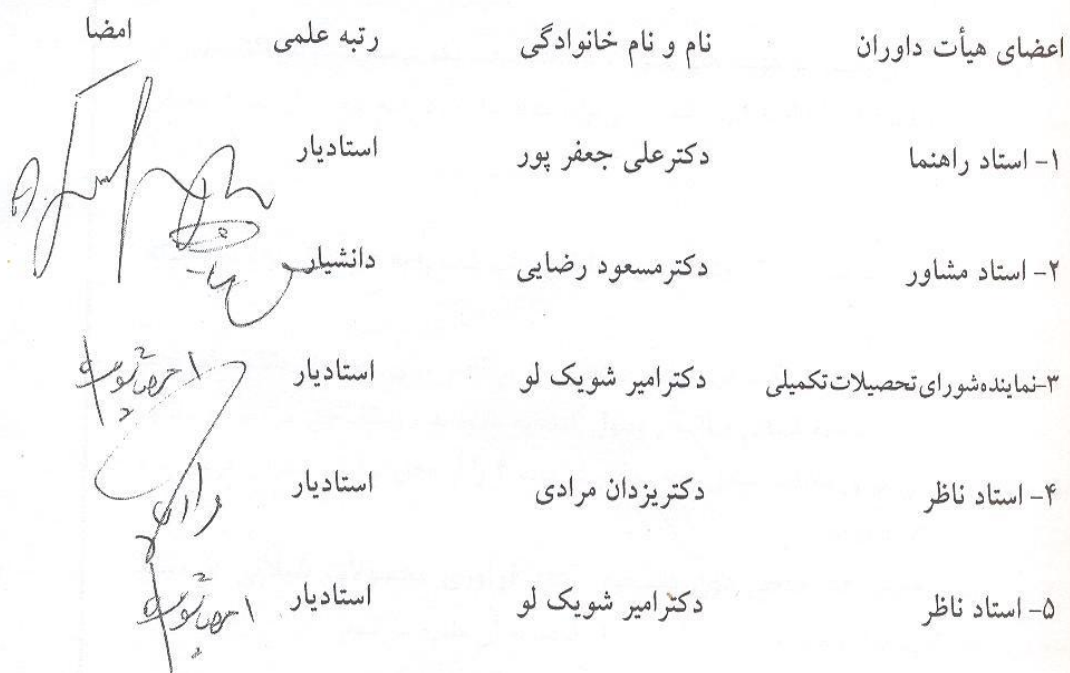 اعضای هیأت داوران نام و نام خانوادگی رتبه علمی امضا
۱- استاد راهنما دکترعلی جعفر پور استادیار
۲- استاد مشاور دکترمسعود رضایی دانشیار
۳-نماینده شورای تحصیلات تکمیلی دکترامیر شویک لو استادیار
۴- استاد ناظر دکتریزدان مرادی استادیار
۵- استاد ناظر دکترامیر شویک لو استادیار